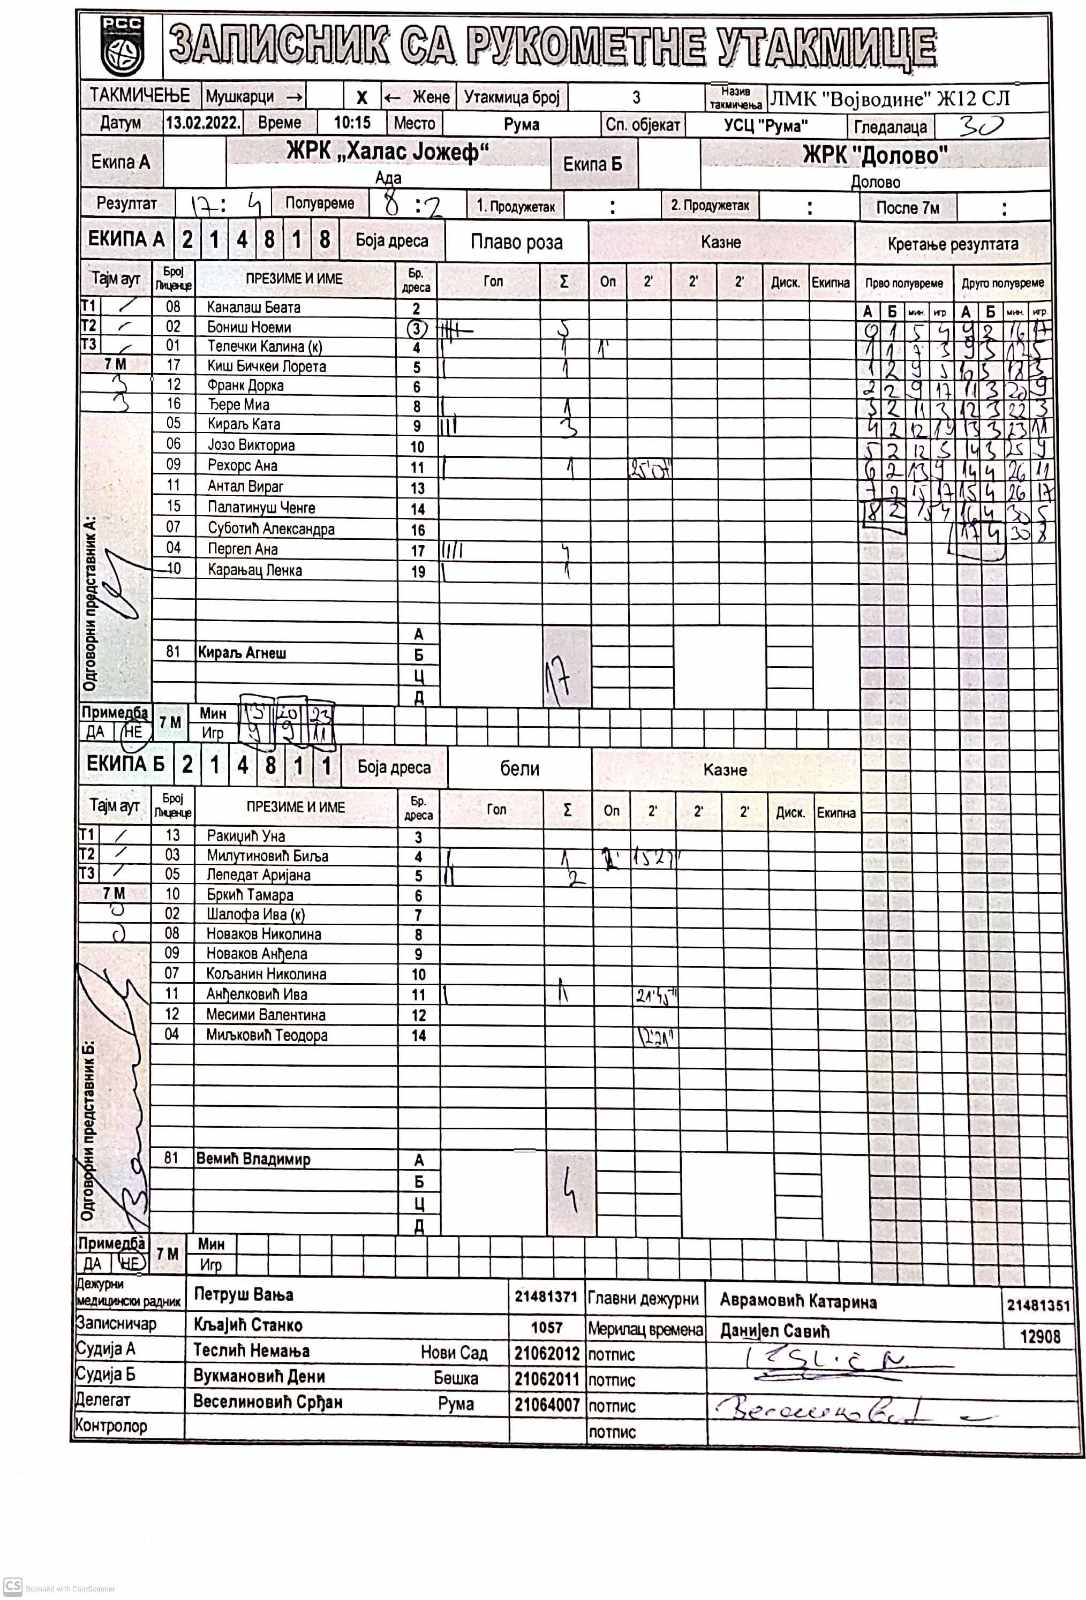 РСС
ЗАПИСНИК СА РУКОМЕТНЕ УТАКМИЦЕ
ТАКМИЧЕЊЕ Мушкарци → X ← Жене Утакмица број 3 Назив такмичења ЛМК "Војводине" Ж12 СЛ
Датум 13.02.2022. Време 10:15 Место Рума Сп. објекат УСЦ "Рума" Гледалаца 30
Екипа А ЖРК „Халас Јожеф“ Екипа Б ЖРК "Долово"
Ада Долово
Резултат 17 : 4 Полувреме 8 : 2 1. Продужетак : 2. Продужетак : После 7м :
ЕКИПА А 2 1 4 8 1 8 Боја дреса Плаво роза Казне Кретање резултата
Тајм аут Број Лиценце ПРЕЗИМЕ И ИМЕ Бр. дреса Гол Σ Оп 2' 2' 2' Диск. Екипна Прво полувреме Друго полувреме
А Б мин. игр А Б мин. игр
Т1 08 Каналаш Беата 2
Т2 02 Бониш Ноеми 3 5
Т3 01 Телечки Калина (к) 4 1 1'
7 М 17 Киш Бичкеи Лорета 5 1
3 12 Франк Дорка 6
3 16 Ђере Миа 8 1
05 Кираљ Ката 9 3
06 Јозо Викториа 10
09 Рехорс Ана 11 1 25'07"
11 Антал Вираг 13
15 Палатинуш Ченге 14
07 Суботић Александра 16
04 Пергел Ана 17 4
10 Карањац Ленка 19 1
0 1 5 4 9 2 16 17
1 1 7 3 9 3 5
1 2 9 5 10 3 18 3
2 2 9 17 11 3 20 9
3 2 11 3 12 3 22 3
4 2 12 13 3 23 11
5 2 12 5 14 3 25 9
6 2 13 9 14 4 26 11
7 2 15 17 15 4 26 17
8 2 15 4 16 4 30 5
17 4 30 8
Одговорни представник А:
А
81 Кираљ Агнеш Б
Ц 17
Д
Примедба 7 М Мин 13 20 23
ДА НЕ Игр 9 9 11
ЕКИПА Б 2 1 4 8 1 1 Боја дреса бели Казне
Тајм аут Број Лиценце ПРЕЗИМЕ И ИМЕ Бр. дреса Гол Σ Оп 2' 2' 2' Диск. Екипна
Т1 13 Ракиџић Уна 3
Т2 03 Милутиновић Биља 4 1 15 27"
Т3 05 Лепедат Аријана 5 2
7 М 10 Бркић Тамара 6
0 02 Шалофа Ива (к) 7
0 08 Новаков Николина 8
09 Новаков Анђела 9
07 Кољанин Николина 10
11 Анђелковић Ива 11 1 21'45"
12 Месими Валентина 12
04 Миљковић Теодора 14 12'21"
Одговорни представник Б:
81 Вемић Владимир А
Б 4
Ц
Д
Примедба 7 М Мин
ДА НЕ Игр
Дежурни медицински радник Петруш Вања 21481371 Главни дежурни Аврамовић Катарина 21481351
Записничар Кљајић Станко 1057 Мерилац времена Данијел Савић 12908
Судија А Теслић Немања Нови Сад 21062012 потпис
Судија Б Вукмановић Дени Бешка 21062011 потпис
Делегат Веселиновић Срђан Рума 21064007 потпис
Контролор потпис
CS Scanned with CamScanner